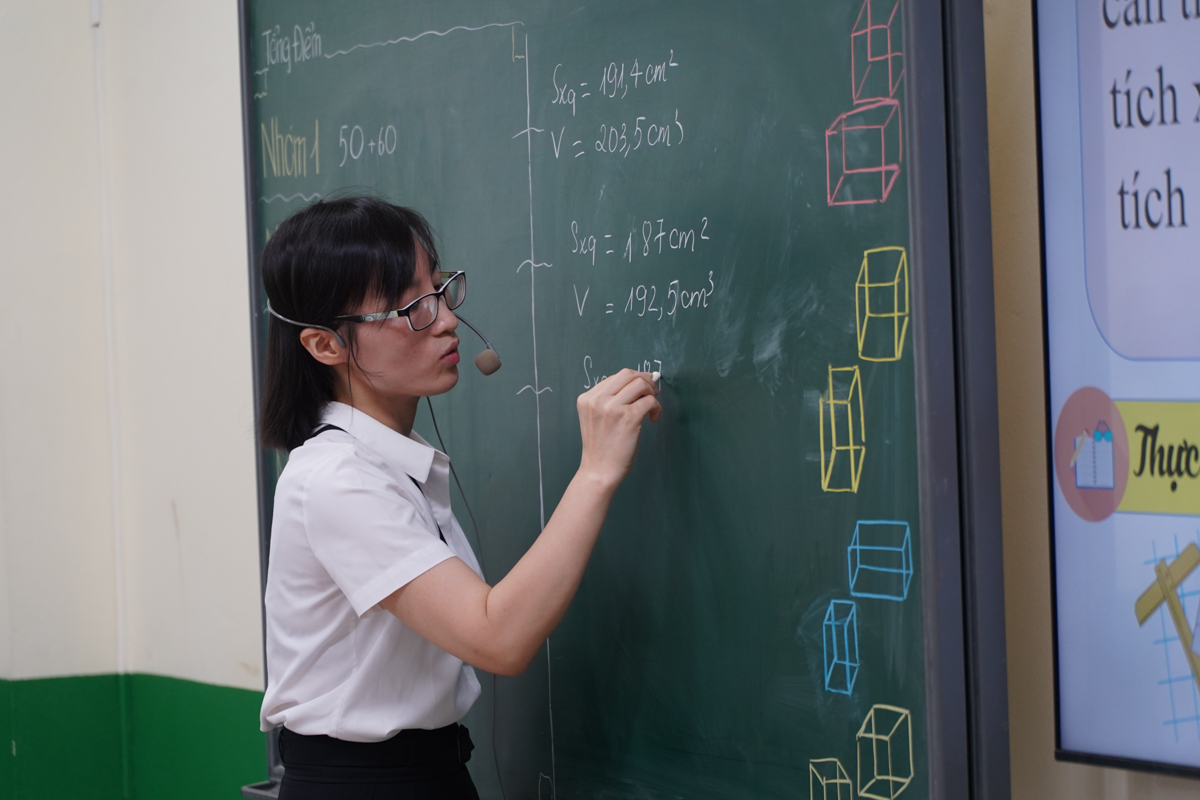 Tổng Điểm
Nhóm 1 50+60
Sxq = 191,4 cm²
V = 203,5 cm³
Sxq = 187 cm²
V = 192,5 cm³
tích
tích
Thực